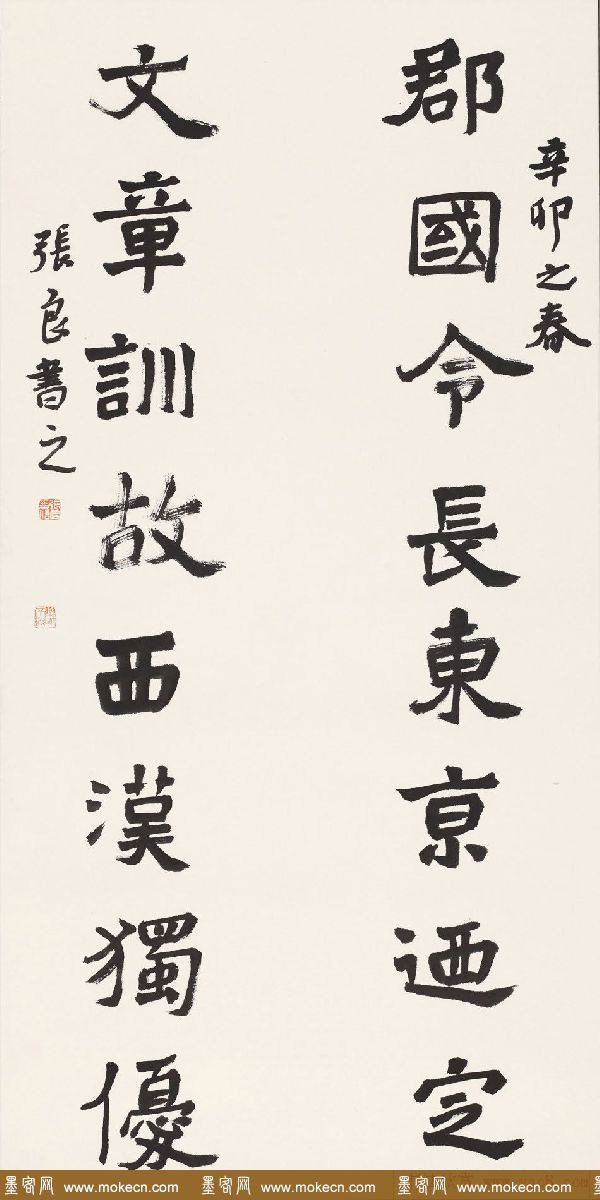 辛卯之春
郡國令長東京迺定
文章訓故西漢獨優
張良書之
墨客网 www.mokecn.com 墨客网 www.mokecn.com 墨客网 www.mokecn.com